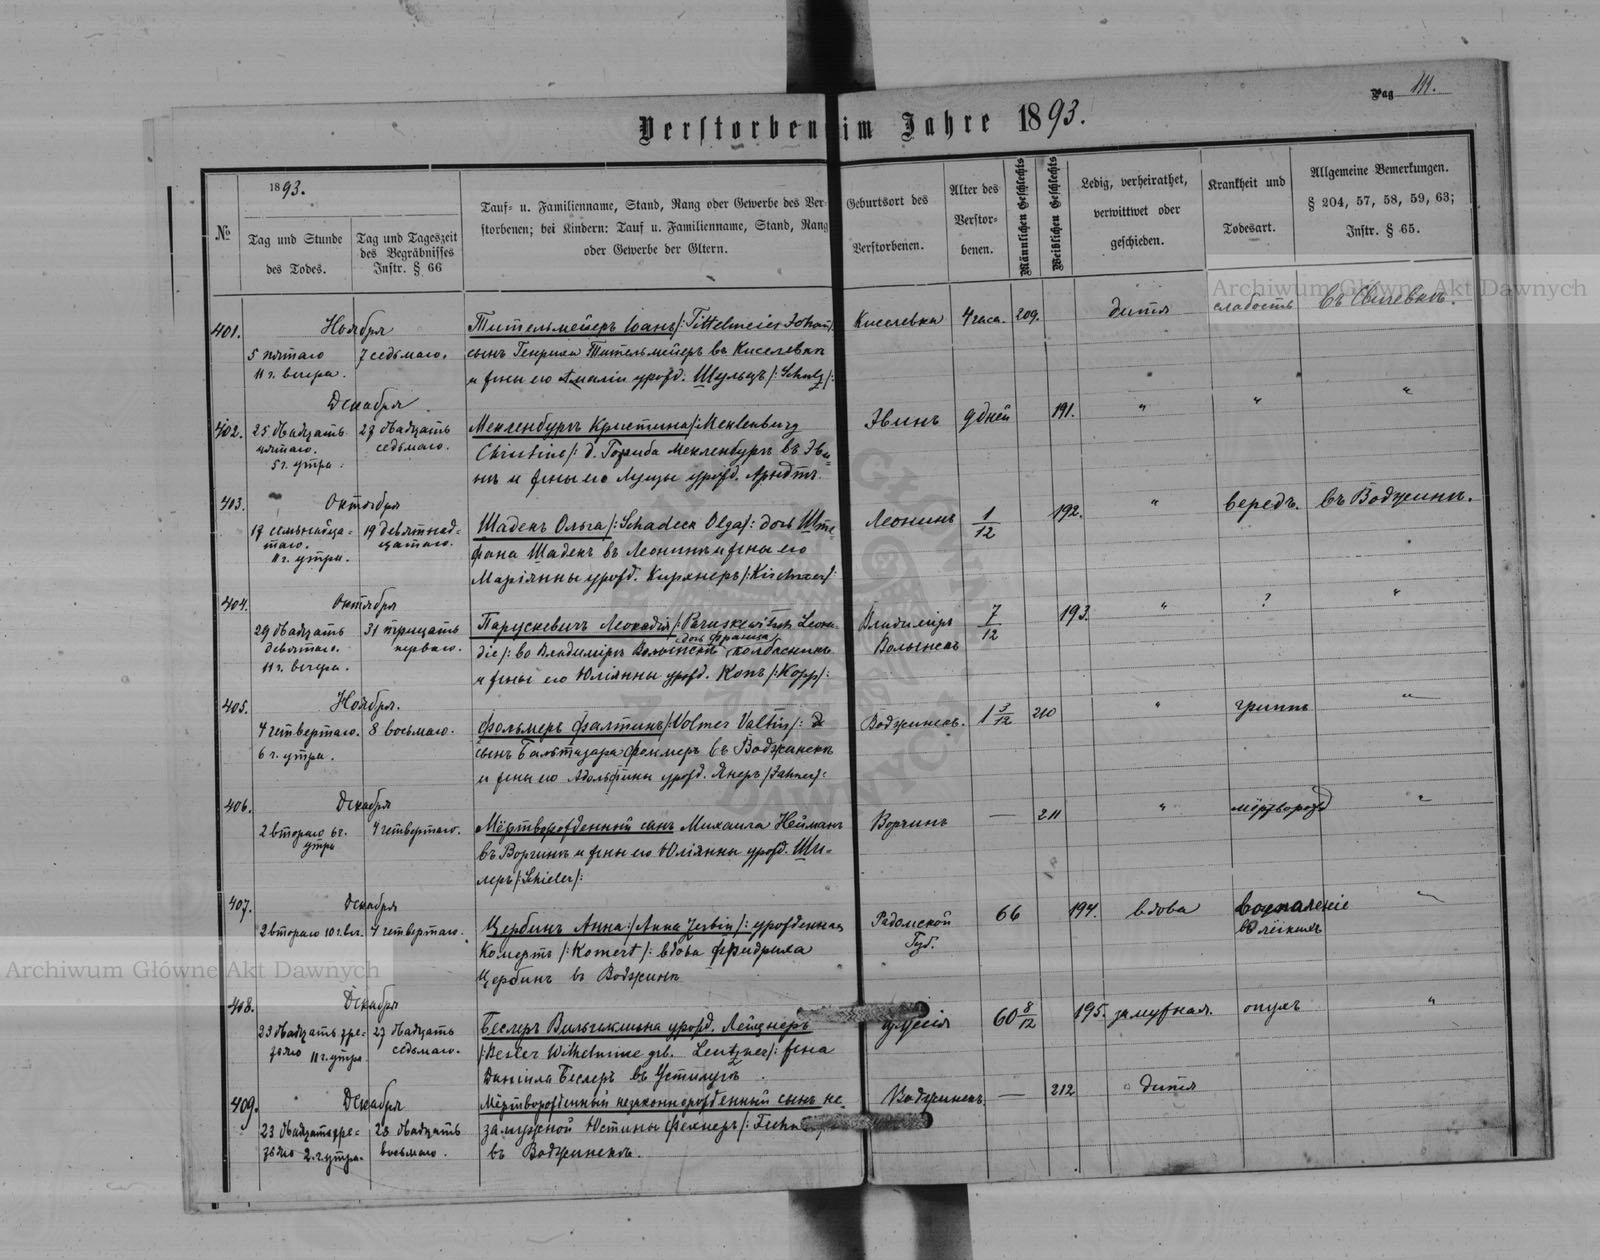 Pag 111.
Verstorben im Jahre 1893.
№
1893.
Tag und Stunde
des Todes.
Tag und Tageszeit
des Begräbnisses
Instr. § 66
Tauf- u. Familienname, Stand, Rang oder Gewerbe des Ver-
storbenen; bei Kindern: Tauf u. Familienname, Stand, Rang
oder Gewerbe der Eltern.
Geburtsort des
Verstorbenen.
Alter des
Verstor-
benen.
Männlichen Geschlechts
Weiblichen Geschlechts
Ledig, verheirathet,
verwittwet oder
geschieden.
Krankheit und
Todesart.
Allgemeine Bemerkungen.
§ 204, 57, 58, 59, 63;
Instr. § 65.
Archiwum Główne Akt Dawnych
401.
Ноября
5 пятаго
11 г. вечера.
7 седьмаго.
Тительмейеръ Іоанъ /: Tittelmeier Johan :/
сынъ Генриха Тительмейеръ въ Киселевкѣ
и жены его Амаліи урожд. Шульцъ /: Schulz /:
Киселевка
4 часа.
209.
дитя
слабость
402.
Декабря
25 двадцать
пятаго.
5 г. утра.
27 двадцать
седьмаго.
Мекленбургъ Кристина /: Meklenburg
Christine /: д. Готлиба Мекленбургъ въ Эви-
нѣ и жены его Луизы урожд. Арндтъ.
Эвинъ
9 дней
191.
"
"
"
403.
Октября
17 семьнадца-
таго.
11 г. утра.
19 девятнад-
цатаго.
Шадекъ Ольга /: Schadeck Olga /: дочь Ште-
фана Шадекъ въ Леонинѣ и жены его
Маріянны урожд. Кирхнеръ /: Kirchner /:
Леонинъ
1/12
192.
"
вередъ.
въ Воджинѣ.
404.
Октября
29 двадцать
девятаго.
11 г. вечера.
31 тридцать
перваго.
Парускевичъ Леокадія /: Paruskewitsch Leoka-
дочь Франца
die /: во Владимірѣ Волынскѣ колбасникъ
и жены его Юліянны урожд. Копъ /: Kopp /:
Владиміръ
Волынскъ
7/12
193.
"
?
"
405.
Ноября.
4 четвертаго.
6 г. утра.
8 восьмаго.
Фольмеръ Фалтинъ /: Volmer Valtin /:
сынъ Бальтазара Фолмеръ въ Воджинскѣ
и жены его Адольфины урожд. Янеръ /: Jahner /:
Воджинскъ.
1 3/12
210
"
гриппъ
"
406.
Декабря
2 втораго 6 г.
утра
4 четвертаго.
Мёртворожденный сынъ Михаила Нейманъ
въ Ворчинѣ и жены его Юліянны урожд. Ши-
леръ /: Schieler /:
Ворчинъ
—
211
"
мёртворожд
"
407.
Декабря
2 втораго 10 г. веч.
4 четвертаго.
Цербинъ Анна /: Anna Zerbin /: урожденная
Комертъ /: Komert /: вдова Фридриха
Цербинъ въ Воджинѣ
Радомской
Губ.
66
194.
вдова
воспаленіе
"
Archiwum Główne Akt Dawnych
408.
Декабря
23 двадцать тре-
тьяго 11 г. утра.
27 двадцать
седьмаго.
Беслеръ Вильгельмина урожд. Лейцнеръ
/: Besler Wilhelmine geb. Leutzner /: жена
Даніила Беслеръ въ Устилугѣ.
60 8/12
195.
замужная.
опухъ
"
409.
Декабря
23 двадцать тре-
тьяго 2 г. утра.
28 двадцать
восьмаго.
Мёртворожденный незаконнорожденный сынъ не-
замужной Юстины Фехнеръ
въ Воджинскѣ.
Воджинскъ.
—
212
дитя